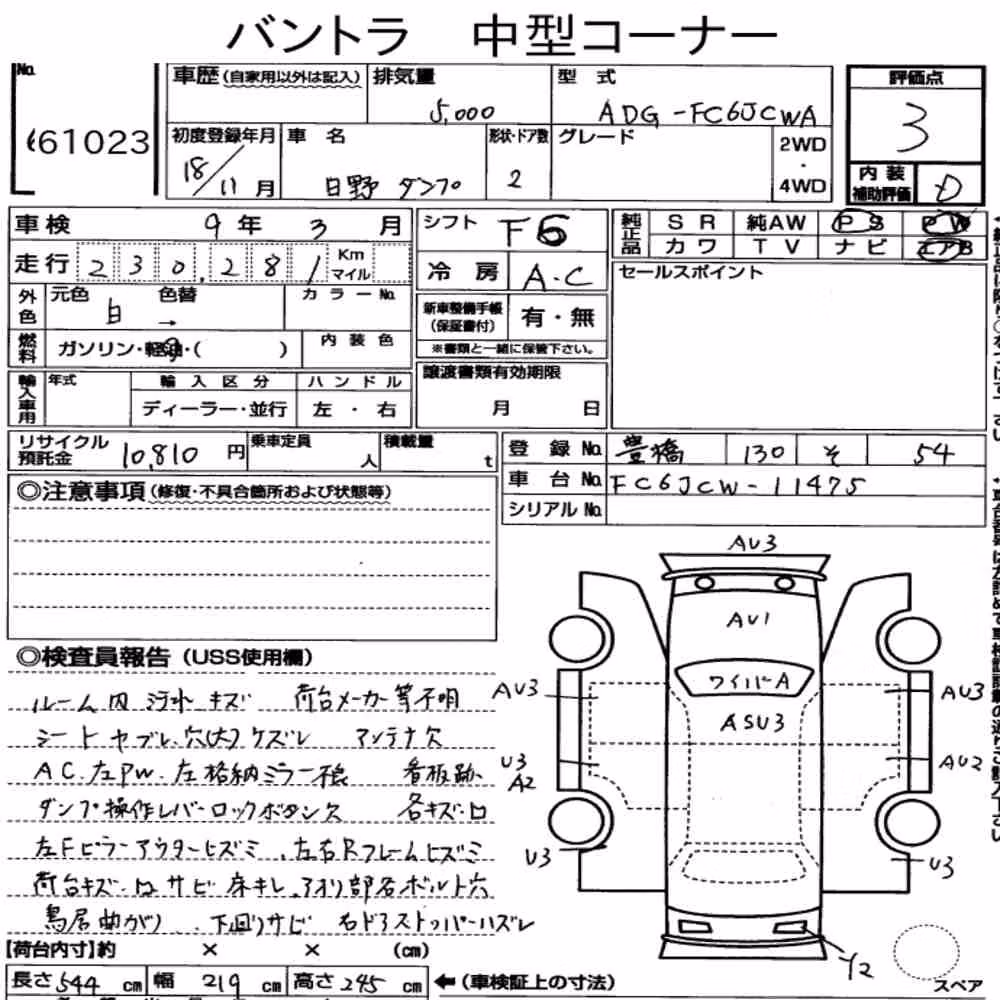 バントラ 中型コーナー
No.
61023
車歴(自家用以外は記入) 排気量 5,000 型式 ADG-FC6JCWA
評価点 3
初度登録年月 18/11月 車名 日野 ダンプ 形状・ドア数 2 グレード 2WD・4WD
内装補助評価 D
車検 9年 3月 シフト F6
純正品 SR 純AW PS PW
カワ TV ナビ エアB
走行 230,281 Km マイル 冷房 A.C
セールスポイント
外色 元色 白 色替 → カラーNo.
新車整備手帳(保証書付) 有・無
※書類と一緒に保管下さい。
燃料 ガソリン・軽油・( ) 内装色
譲渡書類有効期限 月 日
輸入車用 年式 輸入区分 ハンドル
ディーラー・並行 左・右
リサイクル預託金 10,810円 乗車定員 人 積載量 t
登録No. 豊橋 130 そ 54
車台No. FC6JCW-11475
シリアルNo.
◎注意事項(修復・不具合箇所および状態等)
◎検査員報告(USS使用欄)
ルーム内 汚れ キズ 荷台メーカー等不明
シート ヤブレ、穴(大)ケズレ アンテナ欠
AC.左PW.左格納ミラー不良 看板跡
ダンプ操作レバーロックボタン欠 各キズ・凹
左Fピラーアウターヒズミ、左右Rフレームヒズミ
荷台キズ・凹 サビ 床キレ、アオリ部各ボルト穴
鳥居曲がり 下回りサビ 右ドアストッパーハズレ
AU3
AU1
ワイパーA
ASU3
AU3 AU3
U3 A2 AU2
U3 U3
Y2
スペア
【荷台内寸】約 × × (cm)
長さ 544 cm 幅 219 cm 高さ 245 cm ←(車検証上の寸法)